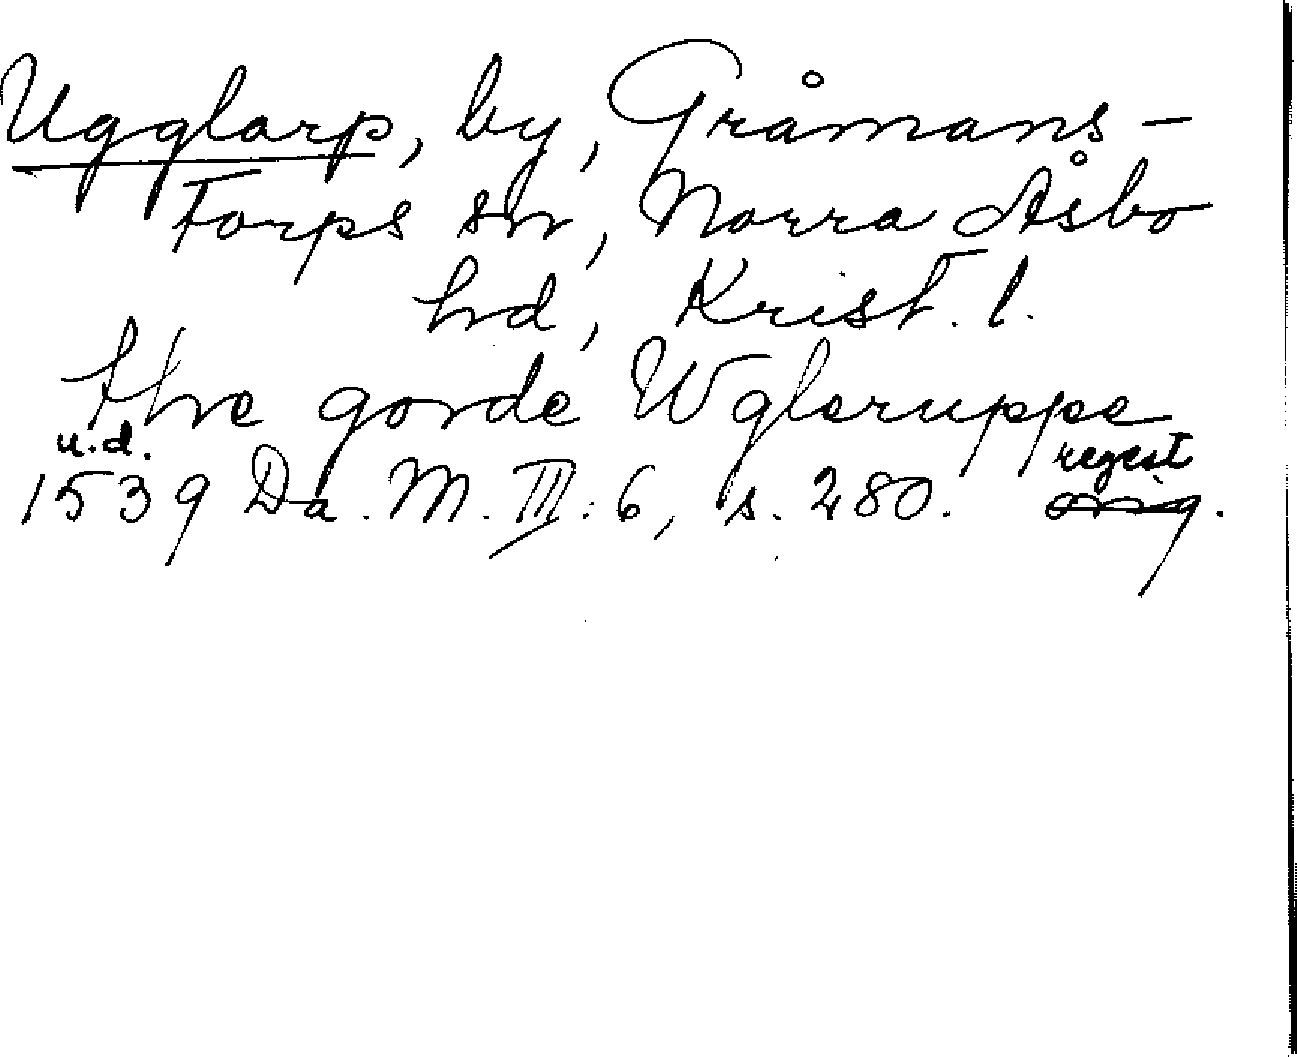 Ugglarp, by, Gråmans-
torps sn, Norra Åsbo
hd, Krist. l.
thre gorde Wgleruppe
u.d.
1539 Da. M. III: 6, s. 280. regest
orig.